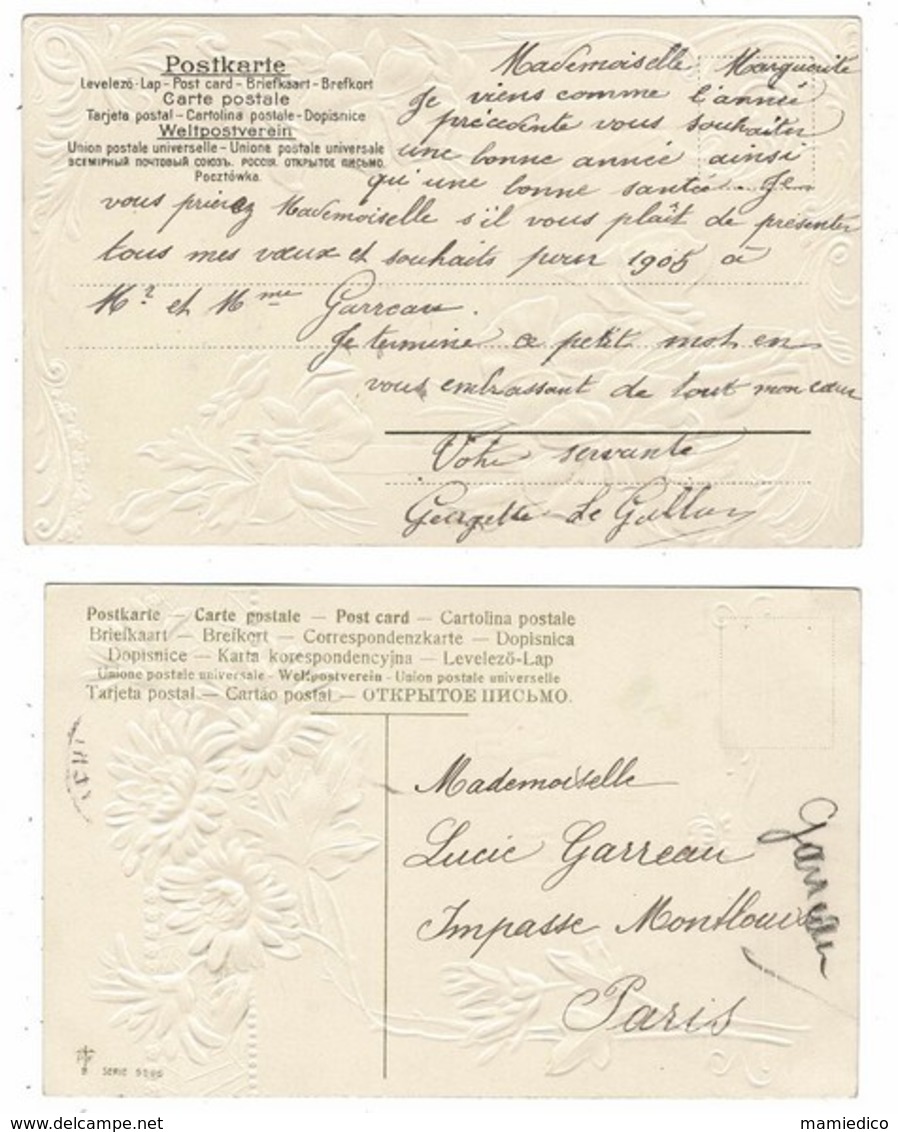 Postkarte
Levelező-Lap - Post card - Briefkaart - Brefkort
Carte postale
Tarjeta postal - Cartolina postale - Dopisnice
Weltpostverein
Union postale universelle - Unione postale universale
ВСЕМІРНЫЙ ПОЧТОВЫЙ СОЮЗЪ. РОССІЯ. ОТКРЫТОЕ ПИСЬМО.
Pocztówka.
Mademoiselle Marguerite
Je viens comme l'année
précédente vous souhaiter
une bonne année ainsi
qu'une bonne santée. Je
vous prierez Mademoiselle s'il vous plaît de présenter
tous mes vœux et souhaits pour 1905 à
Mr et Mme Garreau.
Je termine ce petit mot en
vous embrassant de tout mon cœur
Votre servante
Georgette Le
Postkarte — Carte postale — Post card — Cartolina postale
Briefkaart — Brefkort — Correspondenzkarte — Dopisnica
Dopisnice — Karta korespondencyjna — Levelező-Lap
Unione postale universale - Weltpostverein - Union postale universelle
Tarjeta postal — Cartão postal — ОТКРЫТОЕ ПИСЬМО.
Mademoiselle
Lucie Garreau
Impasse Montlouis
Paris
Garreau
SERIE
delcampe.net
mamiedico